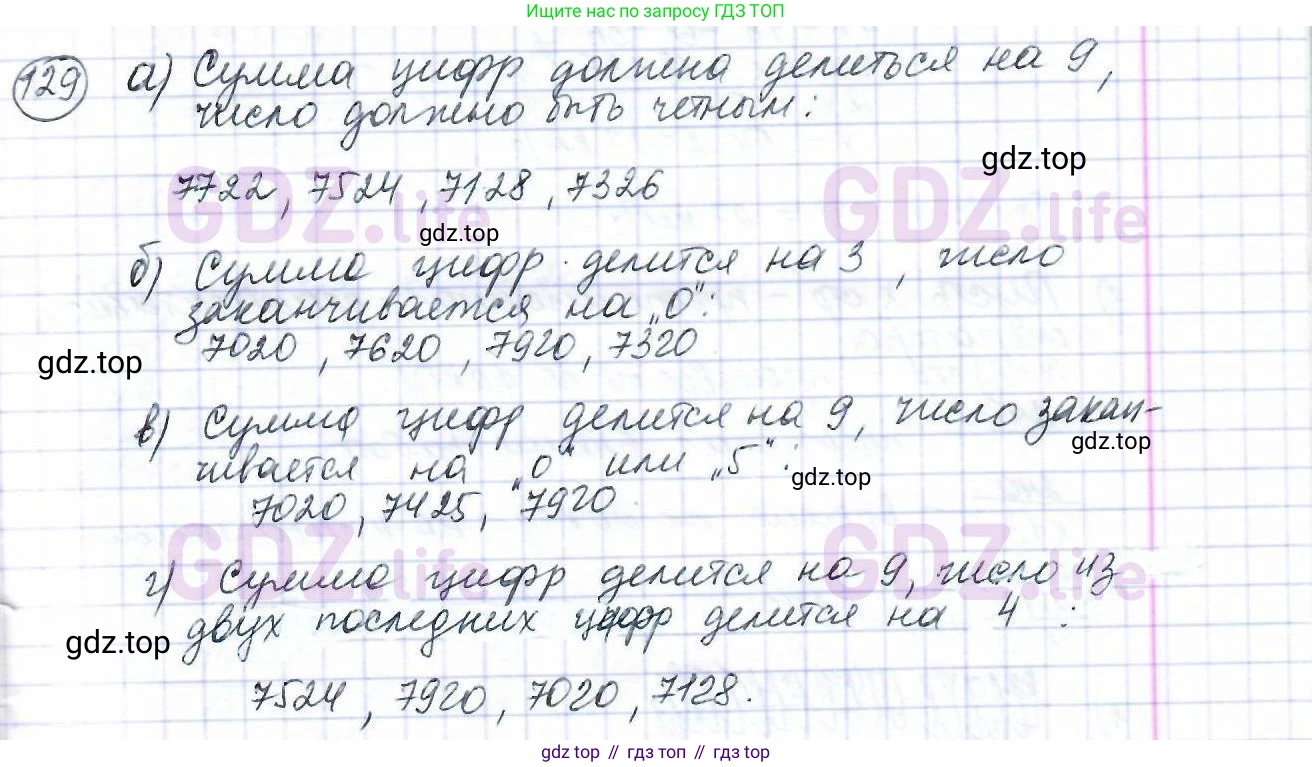 Ищите нас по запросу ГДЗ ТОП
129 а) Сумма цифр должна делиться на 9,
число должно быть четным:
gdz.top
7722, 7524, 7128, 7326
GDZ.life GDZ.life
gdz.top
б) Сумма цифр делится на 3, число
заканчивается на „0":
7020, 7620, 7920, 7320
gdz.top
в) Сумма цифр делится на 9, число закан-
gdz.top
чивается на „0" или „5":
gdz.top
7020, 7425, 7920
GDZ.life GDZ.life
г) Сумма цифр делится на 9, число из
двух последних цифр делится на 4 :
gdz.top
7524, 7920, 7020, 7128.
gdz top // гдз топ // gdz.top